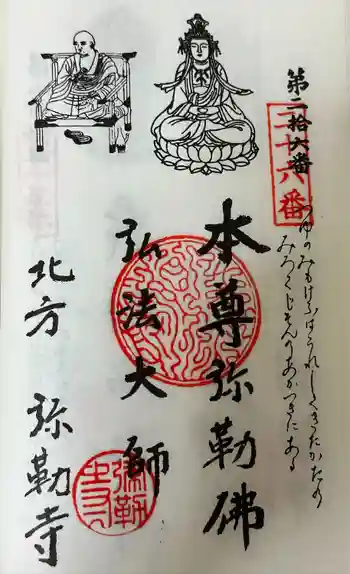 第二拾六番
二十六番
つゆのみもけふはうれしききたかたの
みろくじそんのあかつきにある
本尊弥勒佛
弘法大師
北方 弥勒寺